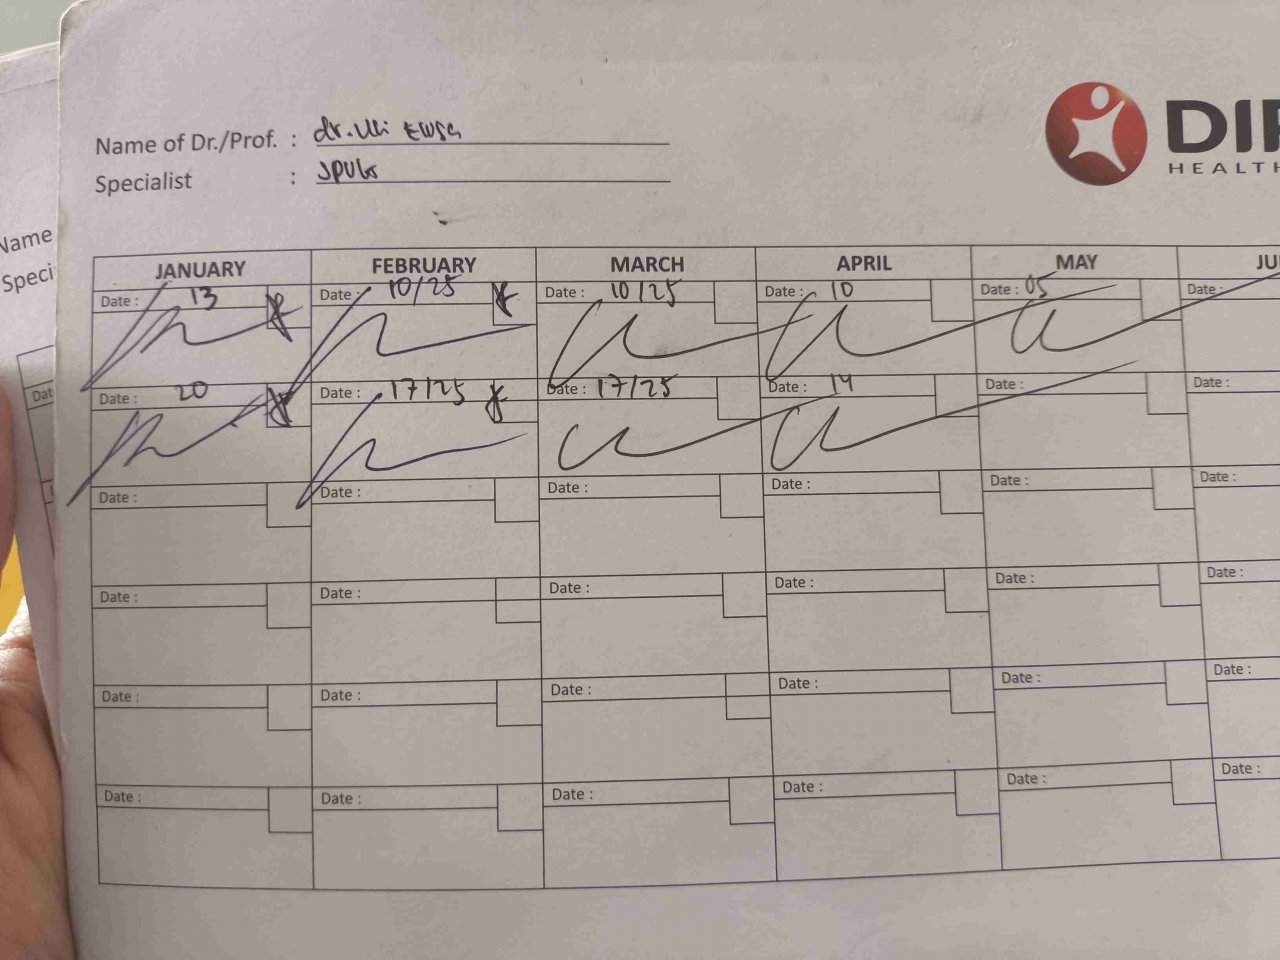 Name of Dr./Prof. : dr. Uli
Specialist :
DI
HEALTH
Name
Speci
JANUARY FEBRUARY MARCH APRIL MAY JU
Date : 13 Date : 10/25 Date : 10/25 Date : 10 Date : 05 Date :
Date : 20 Date : 17/25 Date : 17/25 Date : 14 Date : Date :
Date : Date : Date : Date : Date : Date :
Date : Date : Date : Date : Date : Date :
Date : Date : Date : Date : Date : Date :
Date : Date : Date : Date : Date : Date :
Dat